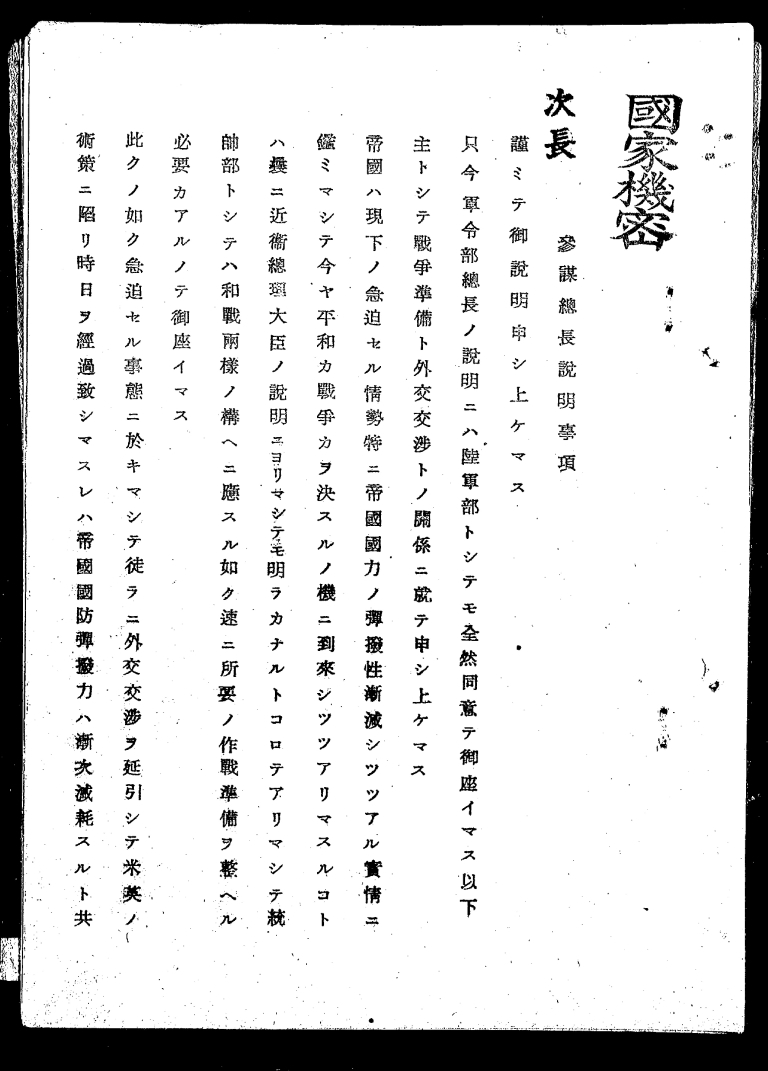 國家機密
次長
參謀總長說明事項
謹ミテ御說明申シ上ケマス
只今軍令部總長ノ說明ニハ陸軍部トシテモ全然同意テ御座イマス以下
主トシテ戰爭準備ト外交交涉トノ關係ニ就テ申シ上ケマス
帝國ハ現下ノ急迫セル情勢特ニ帝國國力ノ彈撥性漸減シツツアル實情ニ
鑑ミマシテ今ヤ平和カ戰爭カヲ決スルノ機ニ到來シツツアリマスルコト
ハ曩ニ近衞總理大臣ノ說明ニヨリマシテモ明ラカナルトコロテアリマシテ統
帥部トシテハ和戰兩樣ノ構ヘニ應スル如ク速ニ所要ノ作戰準備ヲ整ヘル
必要カアルノテ御座イマス
此クノ如ク急迫セル事態ニ於キマシテ徒ラニ外交交涉ヲ延引シテ米英ノ
術策ニ陷リ時日ヲ經過致シマスレハ帝國國防彈撥力ハ漸次減耗スルト共